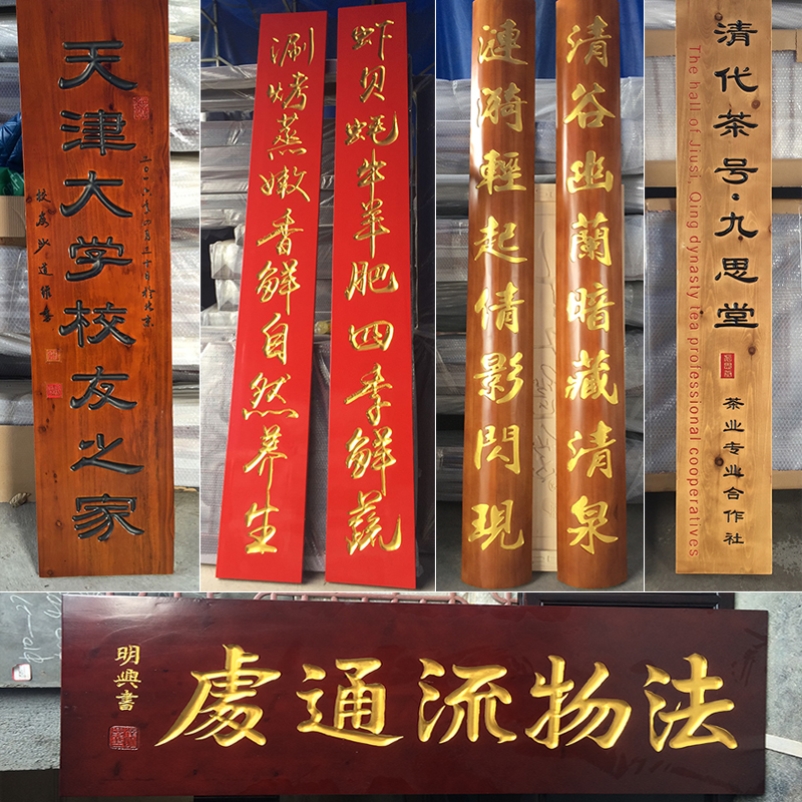 天津大学校友之家
虾贝蚝牛羊肥四季鲜蔬
涮烤蒸嫩香鲜自然养生
清谷幽蘭暗藏清泉
漣漪輕起倩影閃現
清代茶号·九思堂
The hall of Jiusi, Qing dynasty tea professional cooperatives
茶业专业合作社
法物流通處
明興書